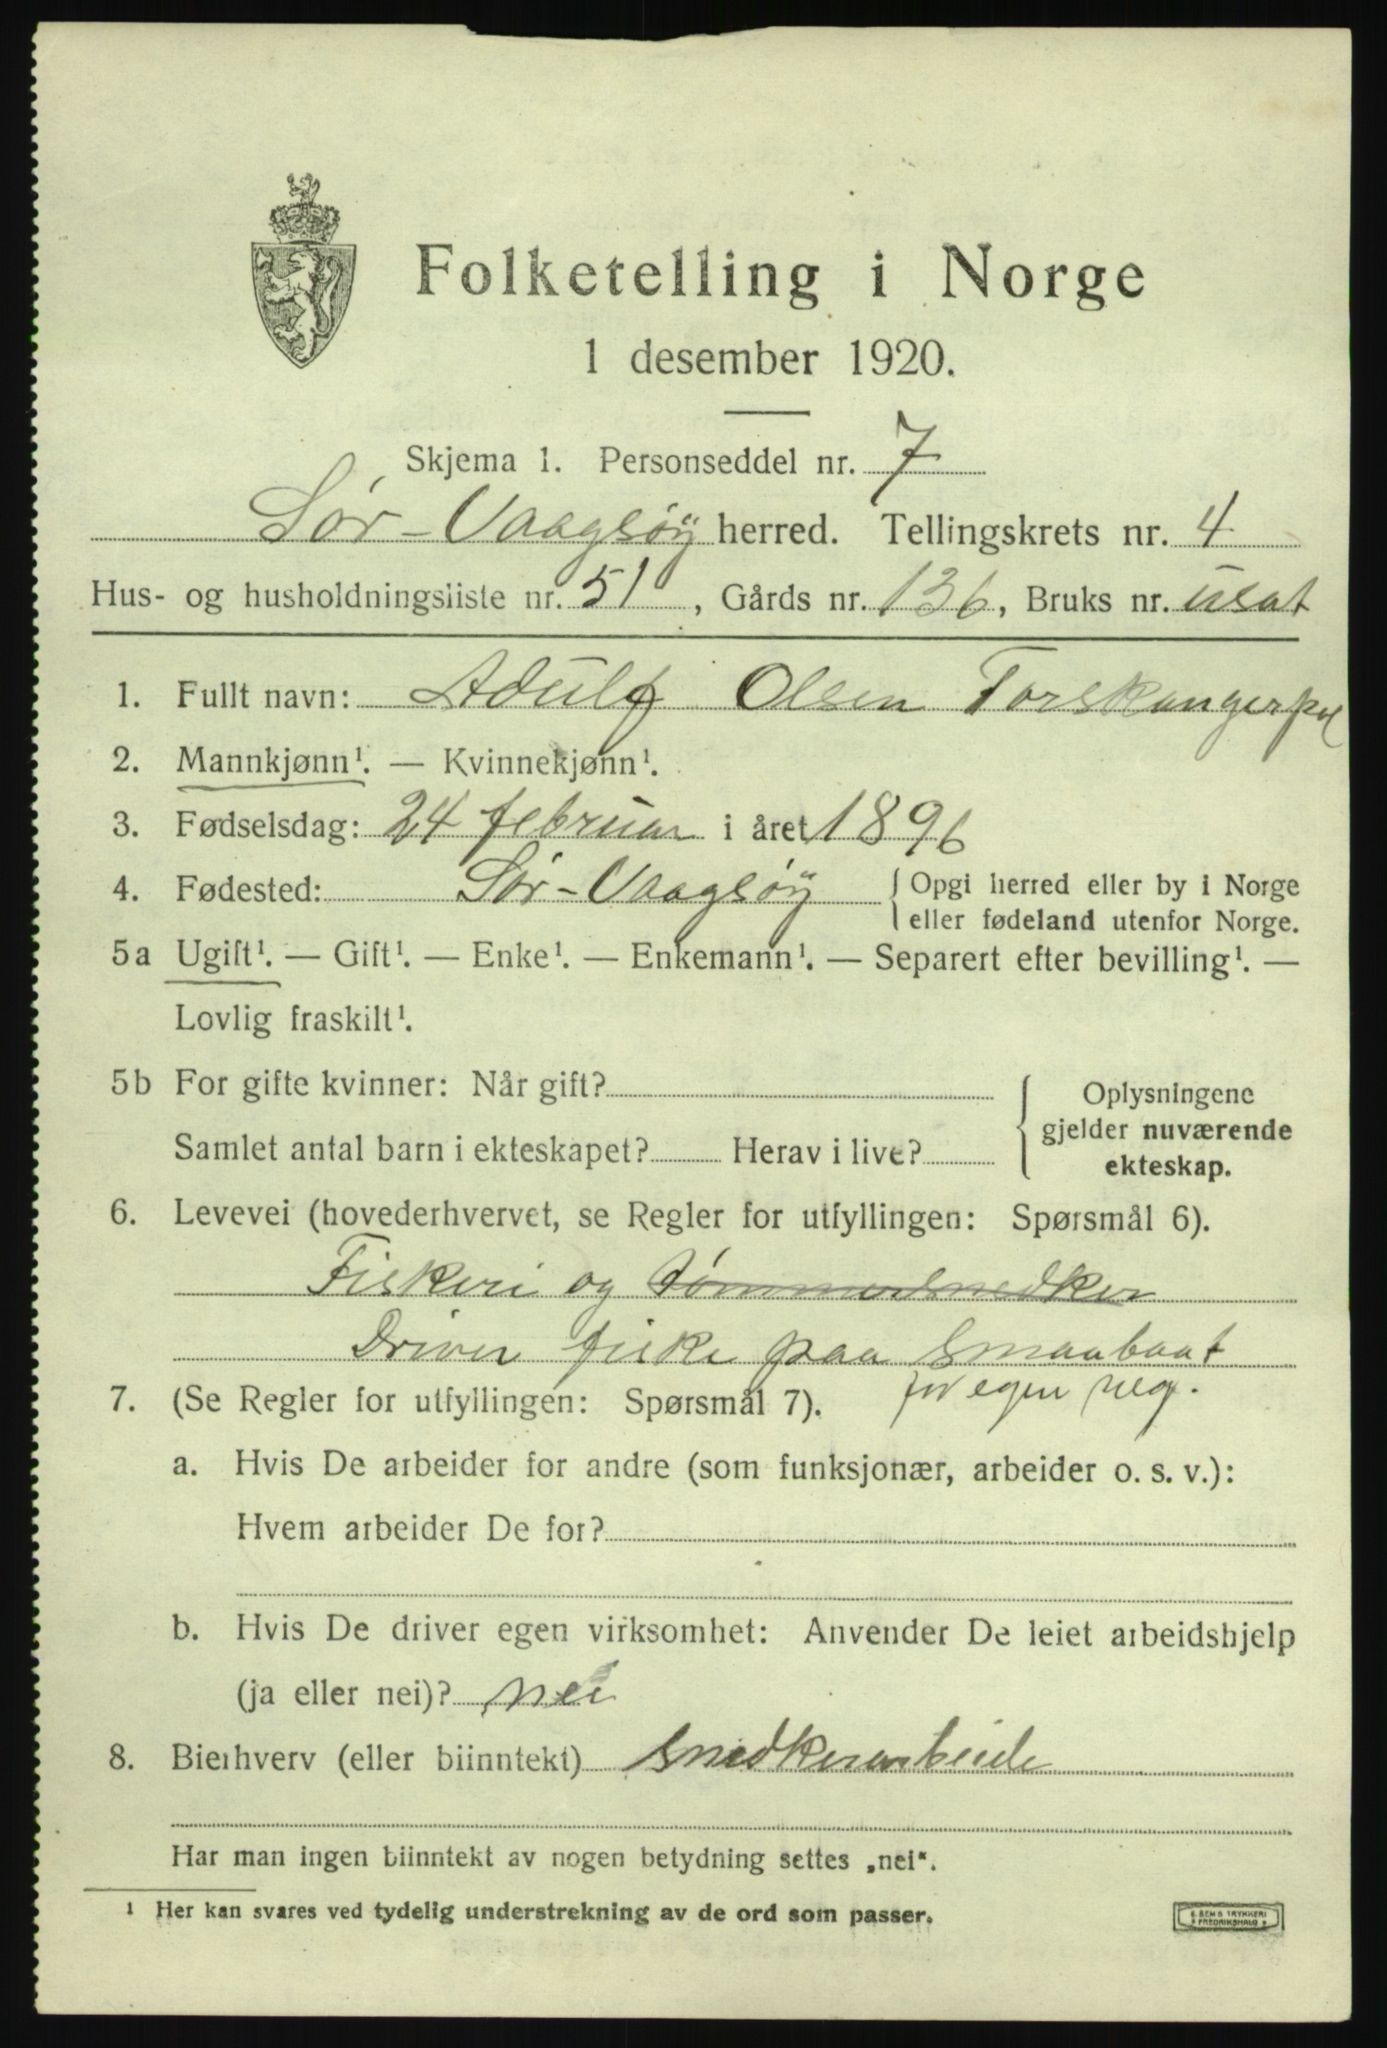 Folketelling i Norge
1 desember 1920.
Skjema 1. Personseddel nr. 7
Sør-Vaagsøy herred. Tellingskrets nr. 4
Hus- og husholdningsliste nr. 51, Gårds nr. 136, Bruks nr. usat
1. Fullt navn: Adulf Olsen Torskangerpol
2. Mannkjønn¹. — Kvinnekjønn¹.
3. Fødselsdag: 24 februar i året 1896
4. Fødested: Sør-Vaagsøy { Opgi herred eller by i Norge
eller fødeland utenfor Norge.
5a Ugift¹. — Gift¹. — Enke¹. — Enkemann¹. — Separert efter bevilling¹. —
Lovlig fraskilt¹.
5b For gifte kvinner: Når gift?
Samlet antal barn i ekteskapet? Herav i live?
{ Oplysningene
gjelder nuværende
ekteskap.
6. Levevei (hovederhvervet, se Regler for utfyllingen: Spørsmål 6).
Fiskeri og tømmersnedker
Driver fiske paa smaabaat
for egen reg.
7. (Se Regler for utfyllingen: Spørsmål 7).
a. Hvis De arbeider for andre (som funksjonær, arbeider o. s. v.):
Hvem arbeider De for?
b. Hvis De driver egen virksomhet: Anvender De leiet arbeidshjelp
(ja eller nei)? nei
8. Bierhverv (eller biinntekt) snedkerarbeide
Har man ingen biinntekt av nogen betydning settes „nei“.
¹ Her kan svares ved tydelig understrekning av de ord som passer.
E. SEMS TRYKKERI
FREDRIKSHALD